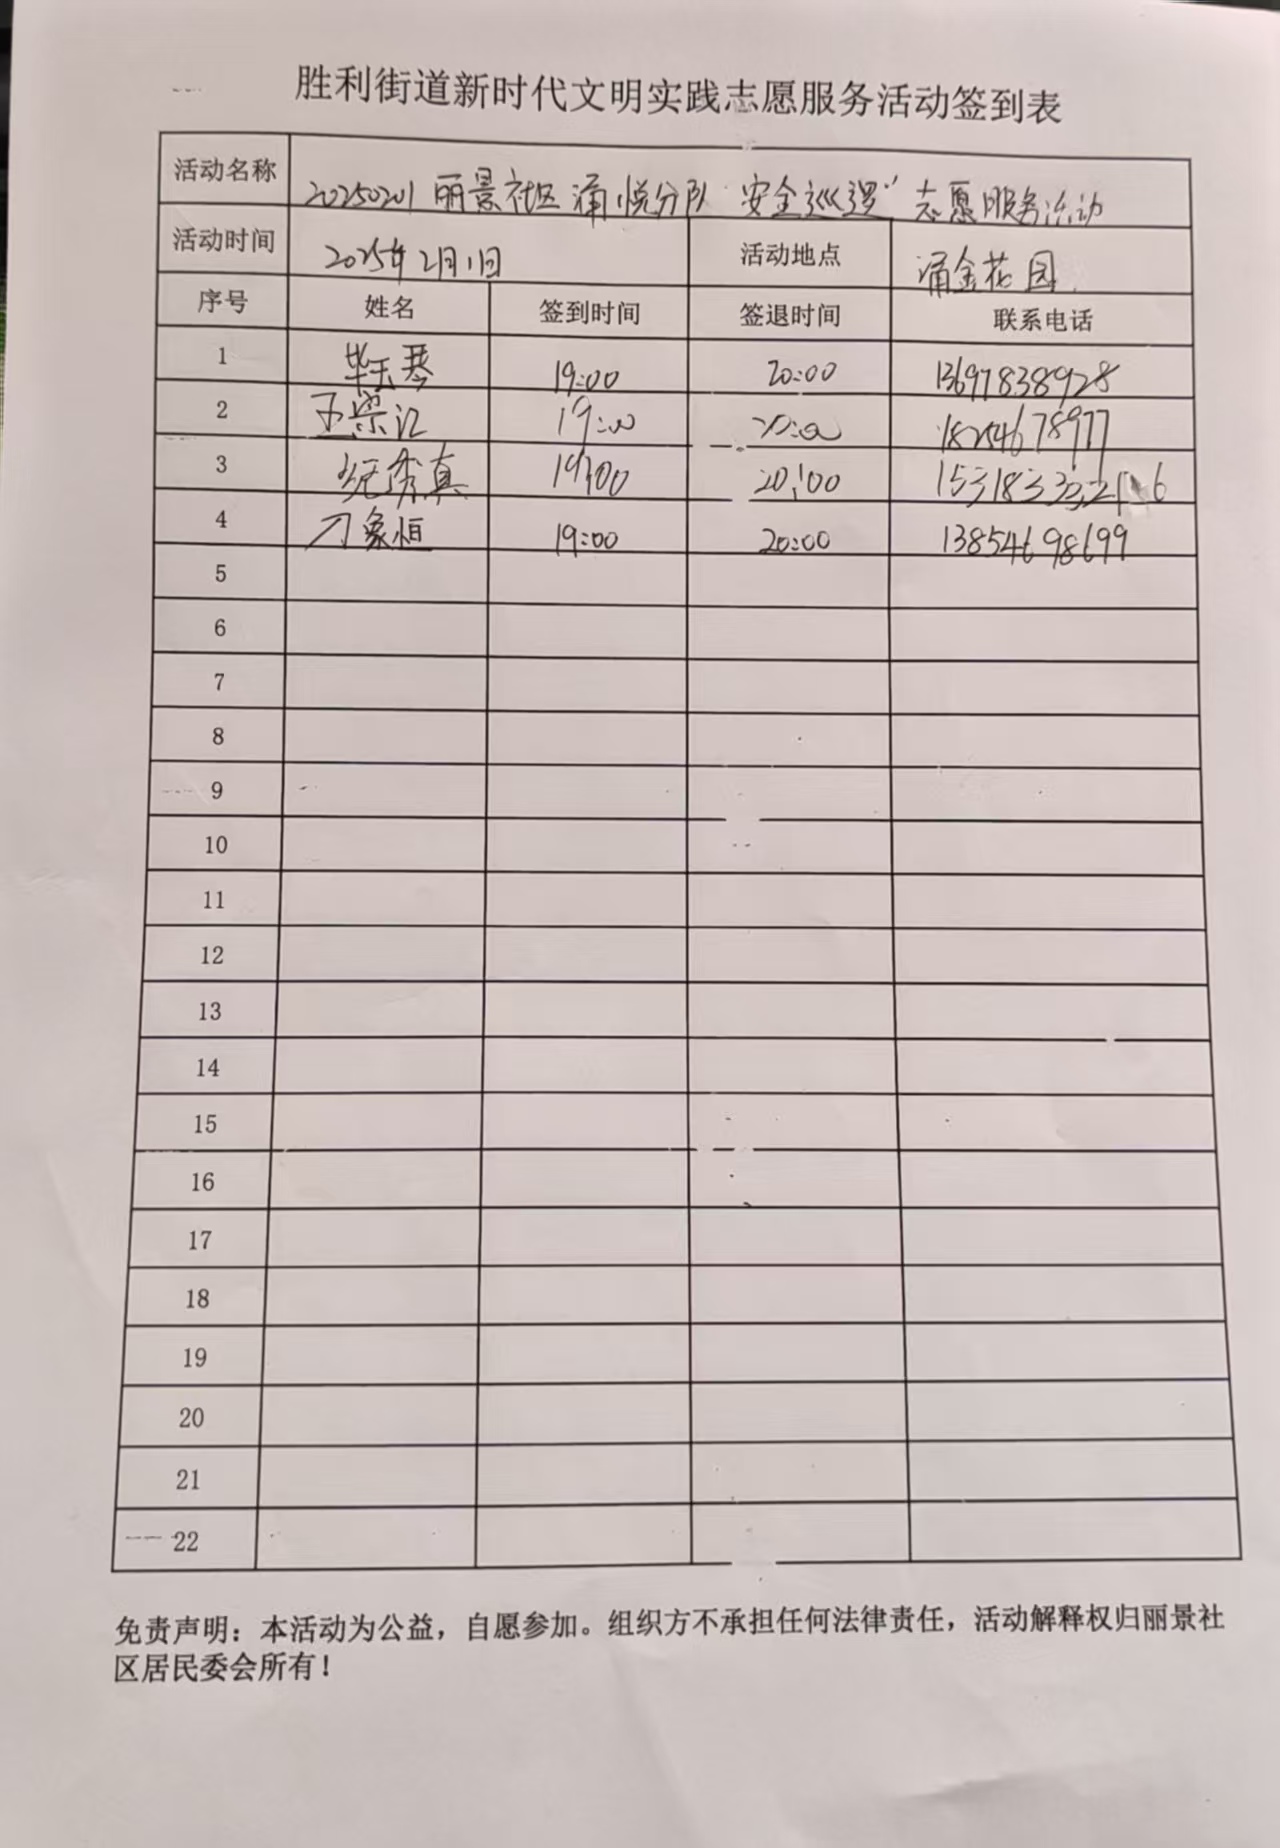 胜利街道新时代文明实践志愿服务活动签到表
活动名称 20250201 丽景社区涌悦分队“安全巡逻”志愿服务活动
活动时间 2025年2月1日 活动地点 涌金花园
序号 姓名 签到时间 签退时间 联系电话
1 毕玉琴 19:00 20:00 13697838928
2 19:00 20:00 18254678977
3 秀真 19:00 20:00
4 刁象恒 19:00 20:00 13854698699
5
6
7
8
9
10
11
12
13
14
15
16
17
18
19
20
21
22
免责声明：本活动为公益，自愿参加。组织方不承担任何法律责任，活动解释权归丽景社
区居民委会所有！